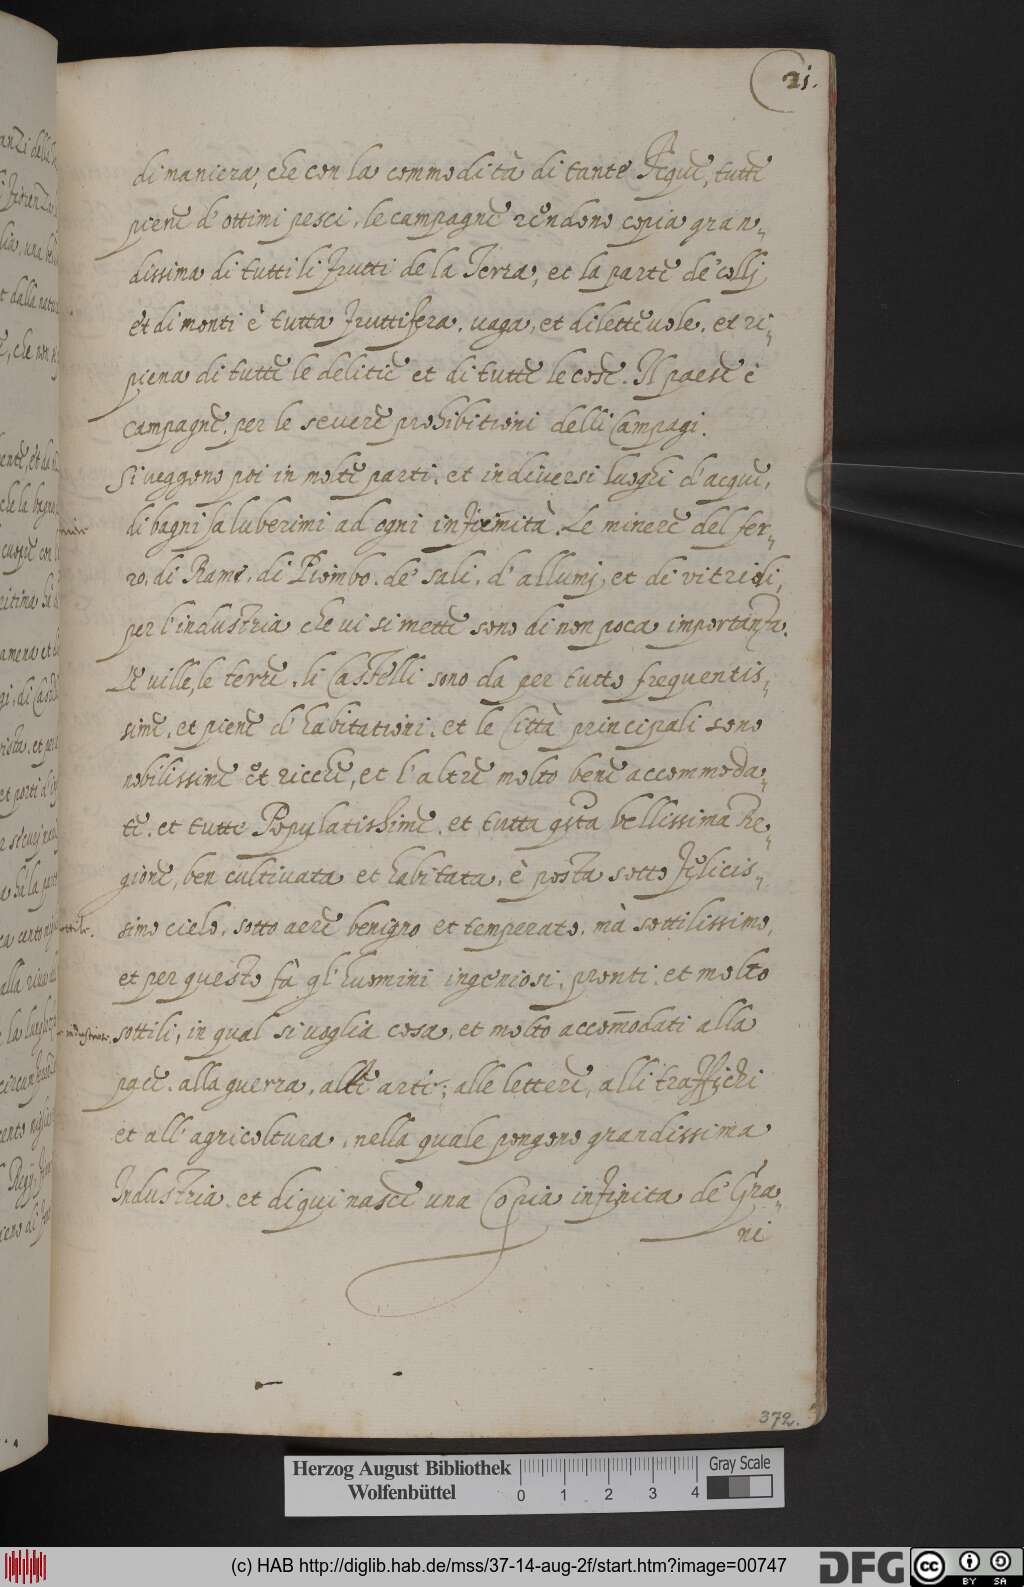 21.
di maniera, che con la commodità di tante Acque, tutte
piene d'ottimi pesci, le campagne rendono copia gran„
dissima di tutti li frutti de la Terra, et la parte de' colli
et di monti è tutta fruttifera, vaga, et dilettevole, et ri„
piena di tutte le delitie et di tutte le cose. Il paese è
campagne, per le severe prohibitioni delli Campagi.
Si veggono poi in molte parti, et in diversi luoghi d'acque,
di bagni saluberimi ad ogni infirmità. Le minere del fer„
ro, di Rame, di Piombo, de' sali, d'allumi, et di vitrioli,
per l'industria che vi si mette sono di non poca importanza.
Le ville, le terre, li Castelli sono da per tutto frequentis„
sime, et piene d'habitationi, et le Città principali sono
nobilissime et ricche, et l'altre molto bene accommoda„
te, et tutte Populatissime, et tutta qsta bellissima Re„
gione, ben cultivata et habitata, è posta sotto felicis„
simo cielo, sotto aere benigno et temperato, mà sottilissimo,
et per questo fà gl'huomini ingeniosi, pronti, et molto
sottili, in qual si voglia cosa, et molto accom̄odati alla
pace, alla guerra, alle arti, alle lettere, alli traffichi
et all'agricoltura, nella quale pongono grandissima
Industria, et di qui nasce una Copia infinita de' Gra„
ni
372.
Herzog August Bibliothek
Wolfenbüttel
0 1 2 3 4
Gray Scale
(c) HAB http://diglib.hab.de/mss/37-14-aug-2f/start.htm?image=00747
DFG
cc BY SA